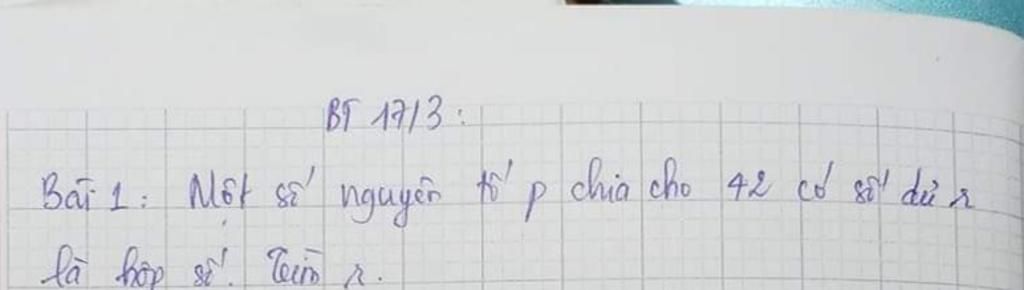 BT 17/3:
Bài 1: Một số nguyên tố p chia cho 42 có số dư r
là hợp số. Tìm r.